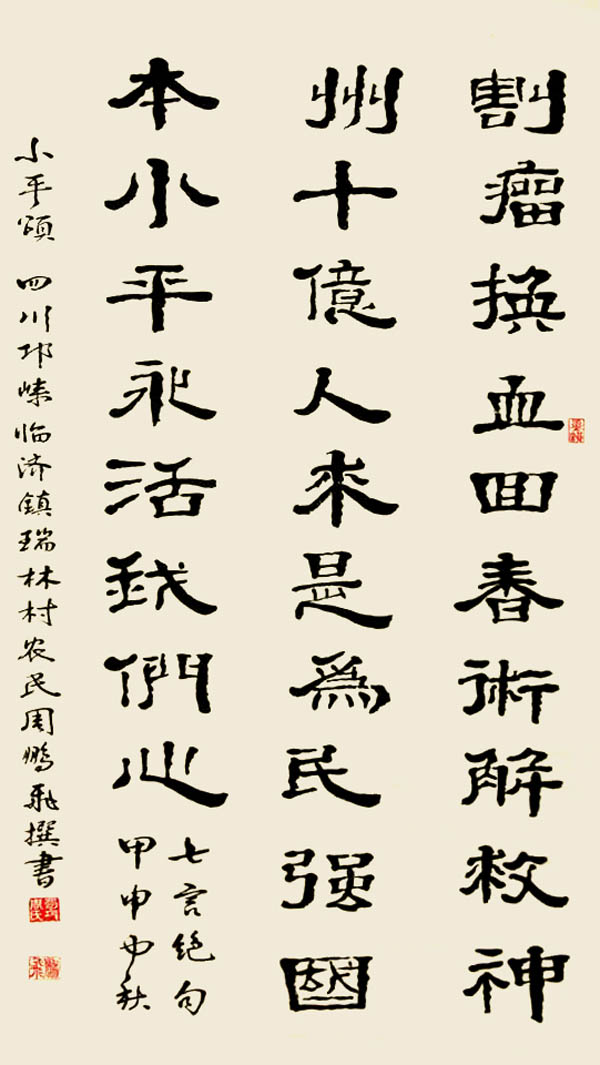 割瘤換血回春術解救神
州十億人來是爲民强國
本小平永活我們心
七言绝句
甲申中秋
小平頌 四川邛崍临济鎮瑞林村农民周鵬飛撰書